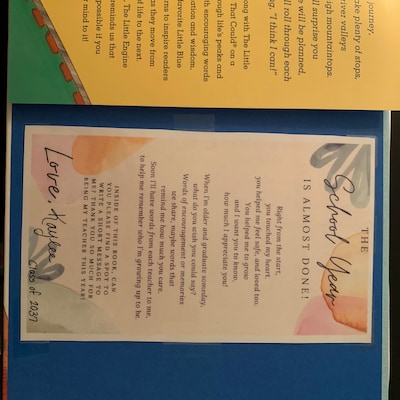 journey,
ake plenty of stops,
river valleys
gh mountaintops.
ll surprise you
e will be planned,
ll roll through each
ng, "I think I can!"
ong with The Little
That Could® on a
ough life's peaks and
ith encouraging words
ation and wisdom.
favorite Little Blue
rns to inspire readers
as they move from
f life to the next.
The Little Engine
reminds us that
possible if you
r mind to it!
THE
School Year
IS ALMOST DONE!
Right from the start,
you touched my heart
you helped me feel safe, and loved too.
You helped me to grow
and I want you to know,
how much I appreciate you!
When I'm older and graduate someday,
what do you wish you could say?
Words of encouragement or memories
we share, maybe words that
remind me how much you care.
Soon I'll have words from each teacher to me,
to help me remember who I'm growing up to be.
INSIDE OF THIS BOOK, CAN
YOU PLEASE FIND A SPOT TO
WRITE A SHORT MESSAGE TO
ME? THANK YOU SO MUCH FOR
BEING MY TEACHER THIS YEAR!
Love, Kaylee
Class of 2037